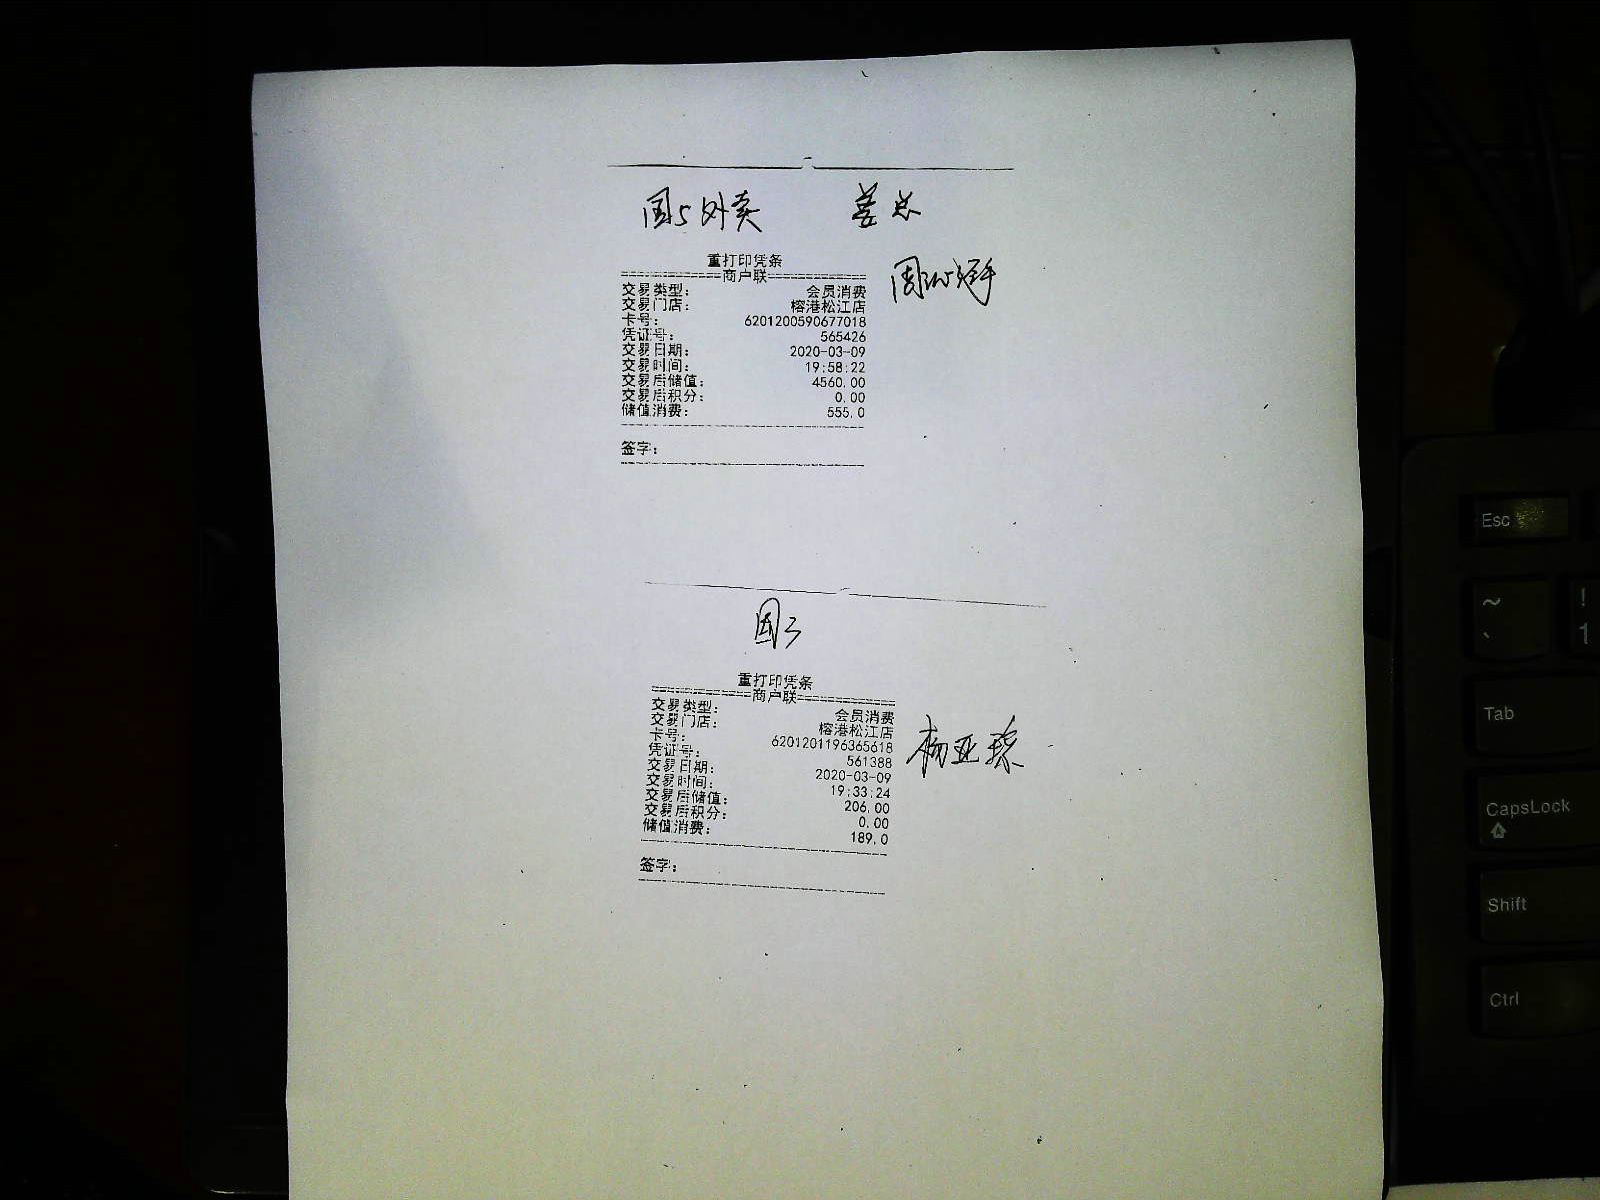 国5外卖 善总
重打印凭条
============商户联============
周
交易类型： 会员消费
交易门店： 榕港松江店
卡号： 6201200590677018
凭证号： 565426
交易日期： 2020-03-09
交易时间： 19:58:22
交易后储值： 4560.00
交易后积分： 0.00
储值消费： 555.0
签字：
国3
重打印凭条
============商户联============
交易类型： 会员消费
交易门店： 榕港松江店
卡号： 6201201196365618
杨亚琼
凭证号： 561388
交易日期： 2020-03-09
交易时间： 19:33:24
交易后储值： 206.00
交易后积分： 0.00
储值消费： 189.0
签字：
Esc
~
!
` 1
Tab
CapsLock
Shift
Ctrl